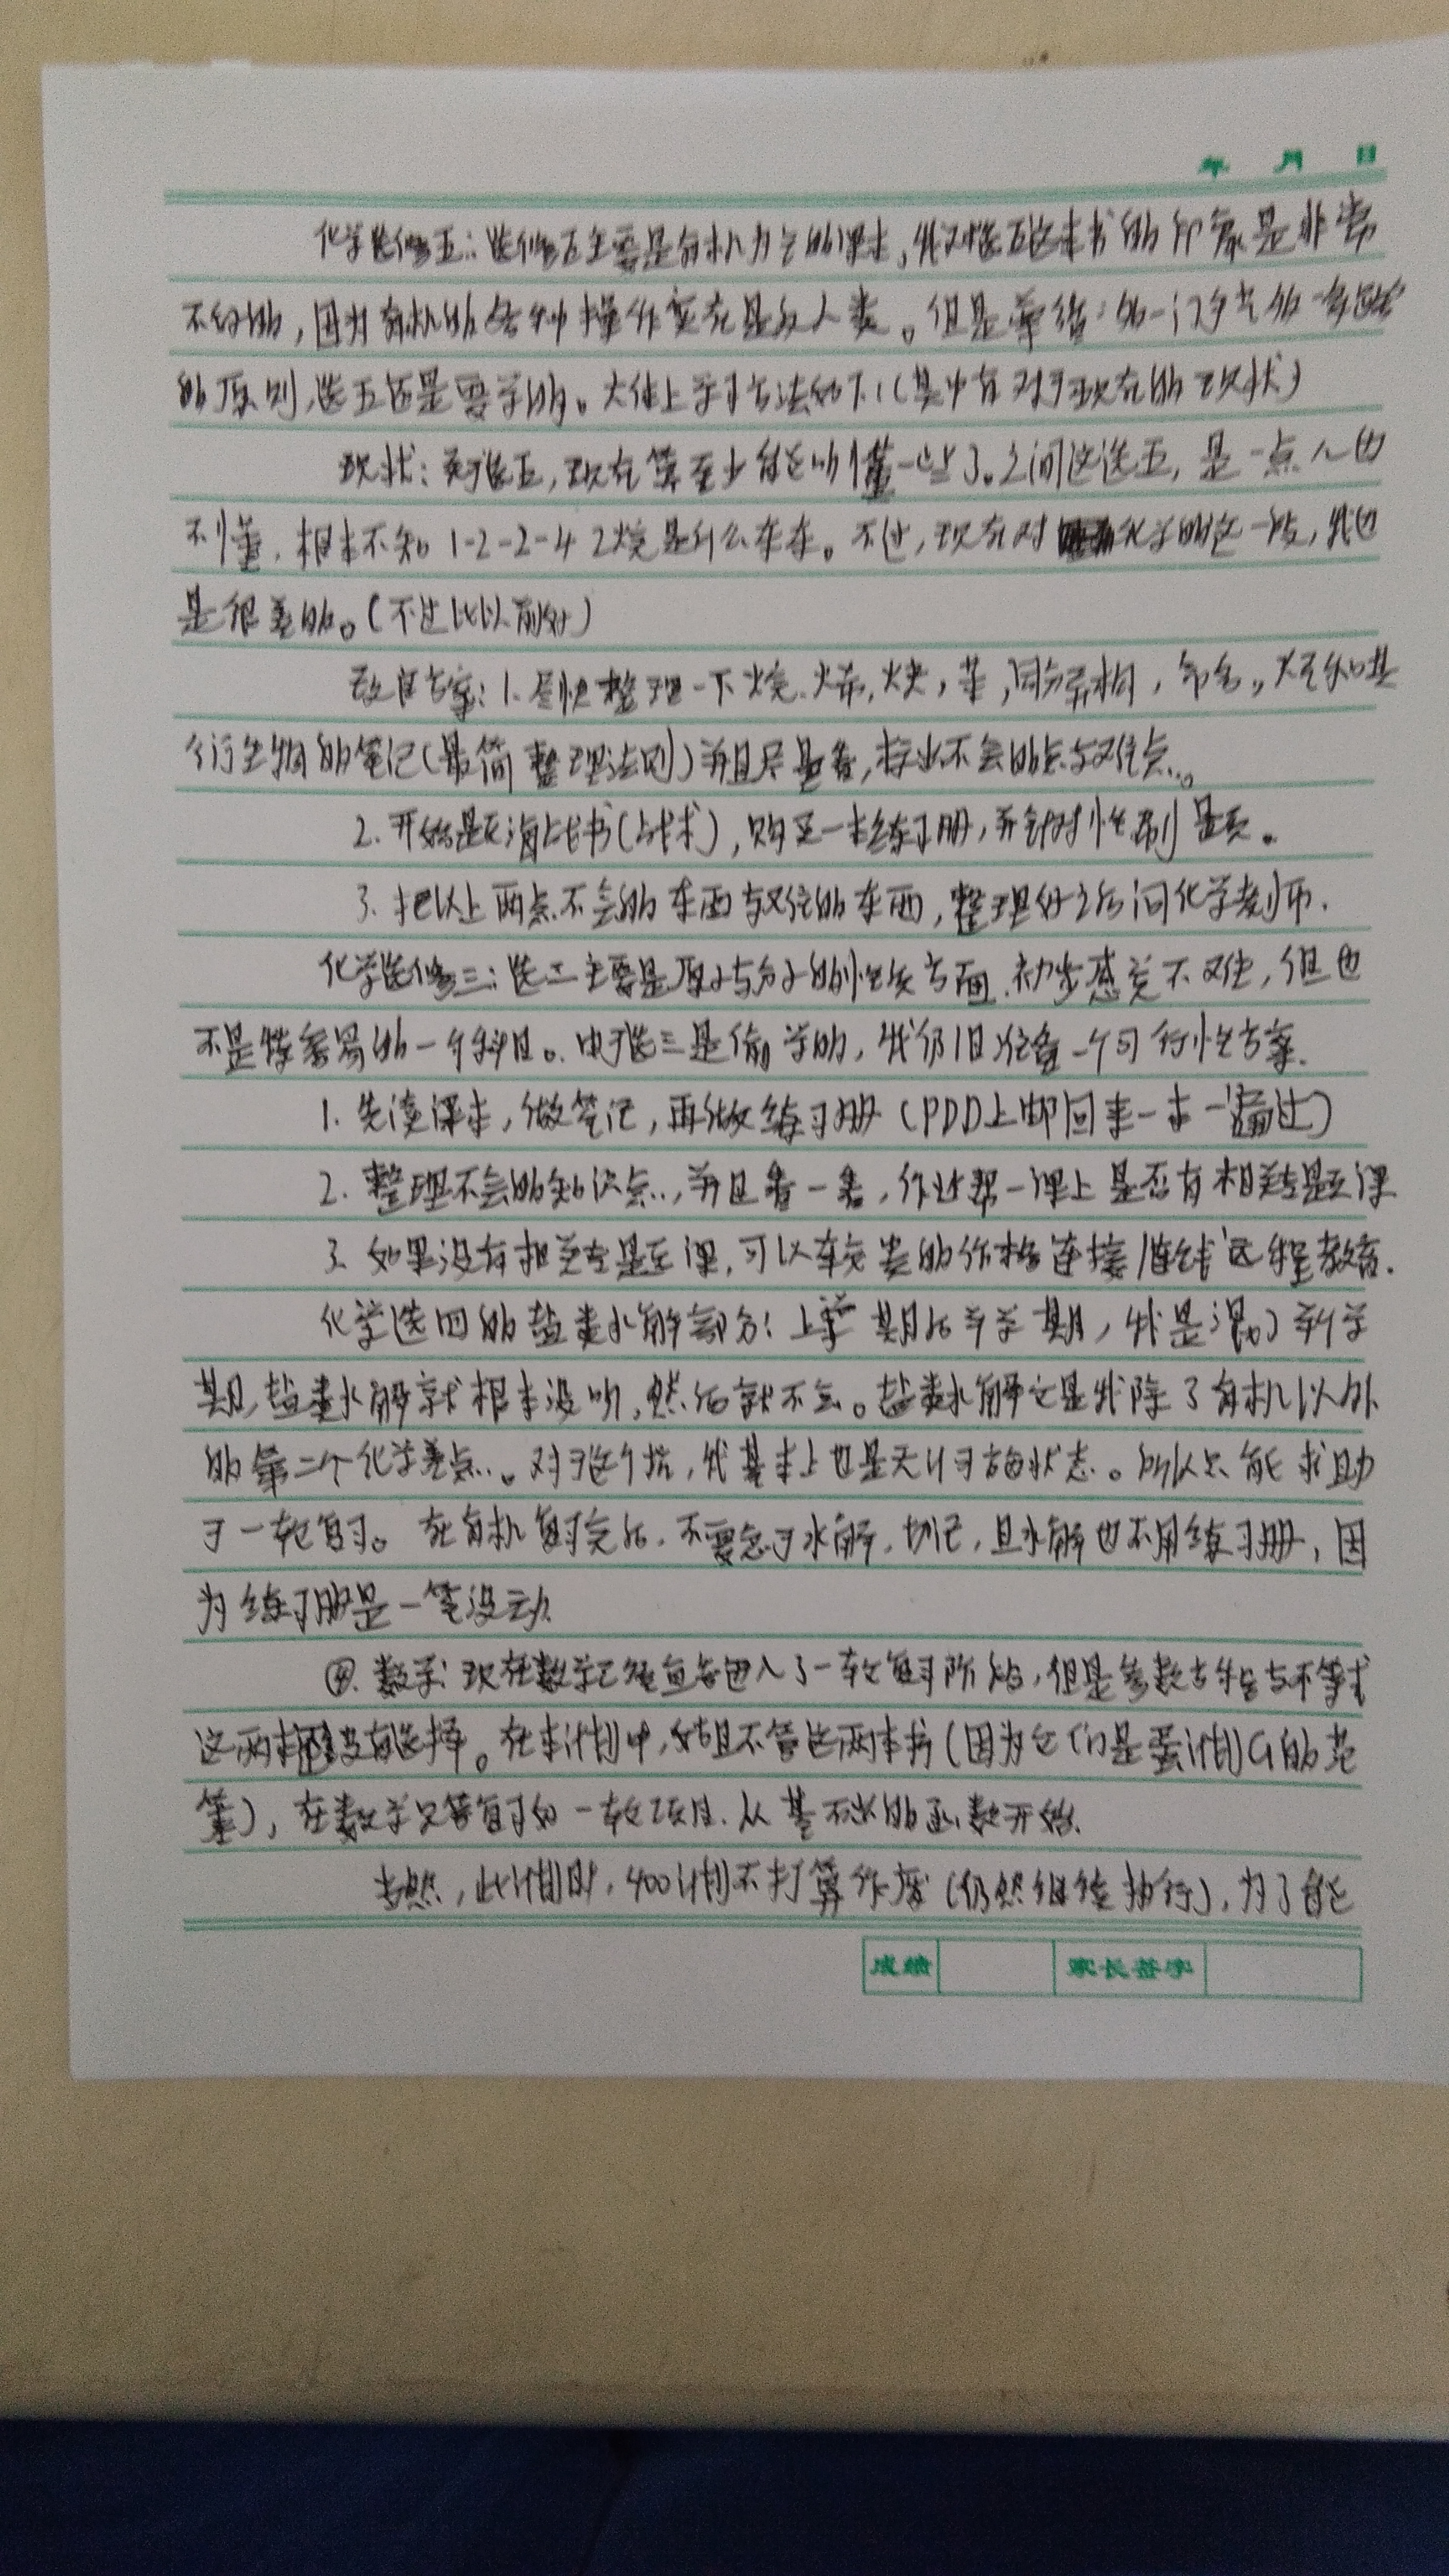 年 月 日
化学选修五：选修五主要是有机化合物课本，我对选五这本书的印象是非常
不好的，因为有机的各种操作实在是反人类。但是学
的原则，选五还是要学的。大体上学习方法如下：(其中有对于现在的现状)
现状：对于选五，现在算至少能听懂一些了。之前这选五，是一点儿也
不懂，根本不知1-2-2-4 2烷是什么东东。不过，现在对化学的这一段，我也
是很差的。(不过比以前好)
改良方案：1.尽快整理一下烷、烯、炔，苯，同分异构，命名。大至和其
衍生物的笔记(最简整理法则)并且尽量看，找出不会的点与疑点。
2.开始题海战书(战术)，购买一本练习册，并针对性刷题。
3.把以上两点不会的东西与疑惑的东西，整理好之后问化学老师.
化学选修三：选三主要是原子与分子的性质方面.初步感觉不难，但也
不是特容易的一个科目。由于选三是偷学的，我仍旧准备一个可行性方案.
1.先读课本，做笔记，再做练习册(PDD上邮回来一本一遍过)
2.整理不会的知识点，并且看一看，作业帮一课上是否有相关专题课
3.如果没有相关专题课，可以去远程教育.
化学选四的盐类水解部分：上学期后半学期，我是混了半个学
期，盐类水解就根本没听，然后就不会。盐类水解也是我除了有机以外
的第二个化学差点。对于这个坑，我基本上也是无计可施的状态。所以只能求助
于一轮复习。在有机复习完后，不要急于水解，切记，且水解也不用练习册，因
为练习册是一笔没动
④.数学：现在数学已经直接进入了一轮复习阶段，但是参数方程与不等式
这两本没有选择。在本计划中，姑且不管这两本书(因为它们是蛋计划G的范
筹)，在数学只等复习的一轮项目.从基本的函数开始.
当然，此计划时，400计划不打算作废(仍然继续执行)，为了能
成绩 家长签字